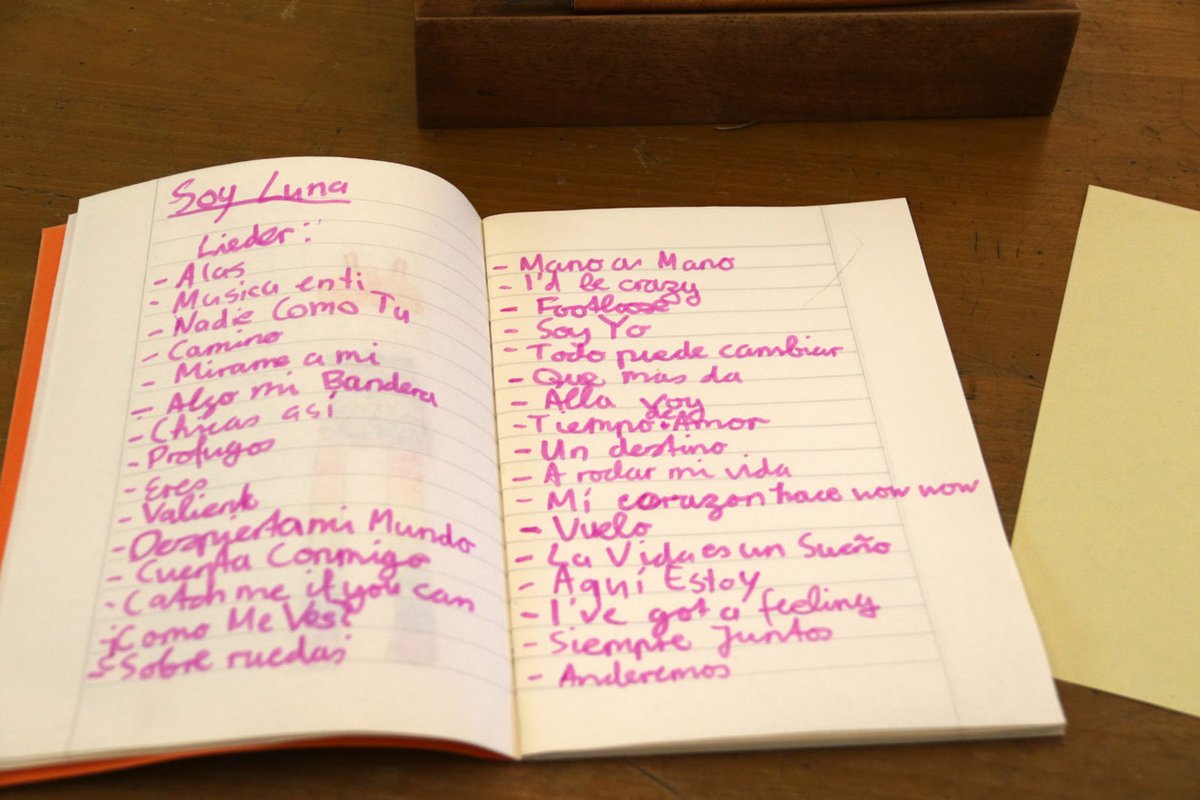 Soy Luna
Lieder:
- Alas
- Musica enti
- Nadie Como Tu
- Camino
- Mirame a mi
- Algo mi Bandera
- Chicas así
- Profugos
- Eres
- Valiente
- Despiertami Mundo
- Cuenta Conmigo
- Catch me if you can
- ¿Como Me Ves?
- Sobre ruedas
- Mano a Mano
- I'd be crazy
- Footloose
- Soy Yo
- Todo puede cambiar
- Que mas da
- Alla voy
- Tiempo Amor
- Un destino
- A rodar mi vida
- Mi corazon hace wow wow
- Vuelo
- La Vida es un Sueño
- Aquí Estoy
- I've got a feeling
- Siempre Juntos
- Anderemos